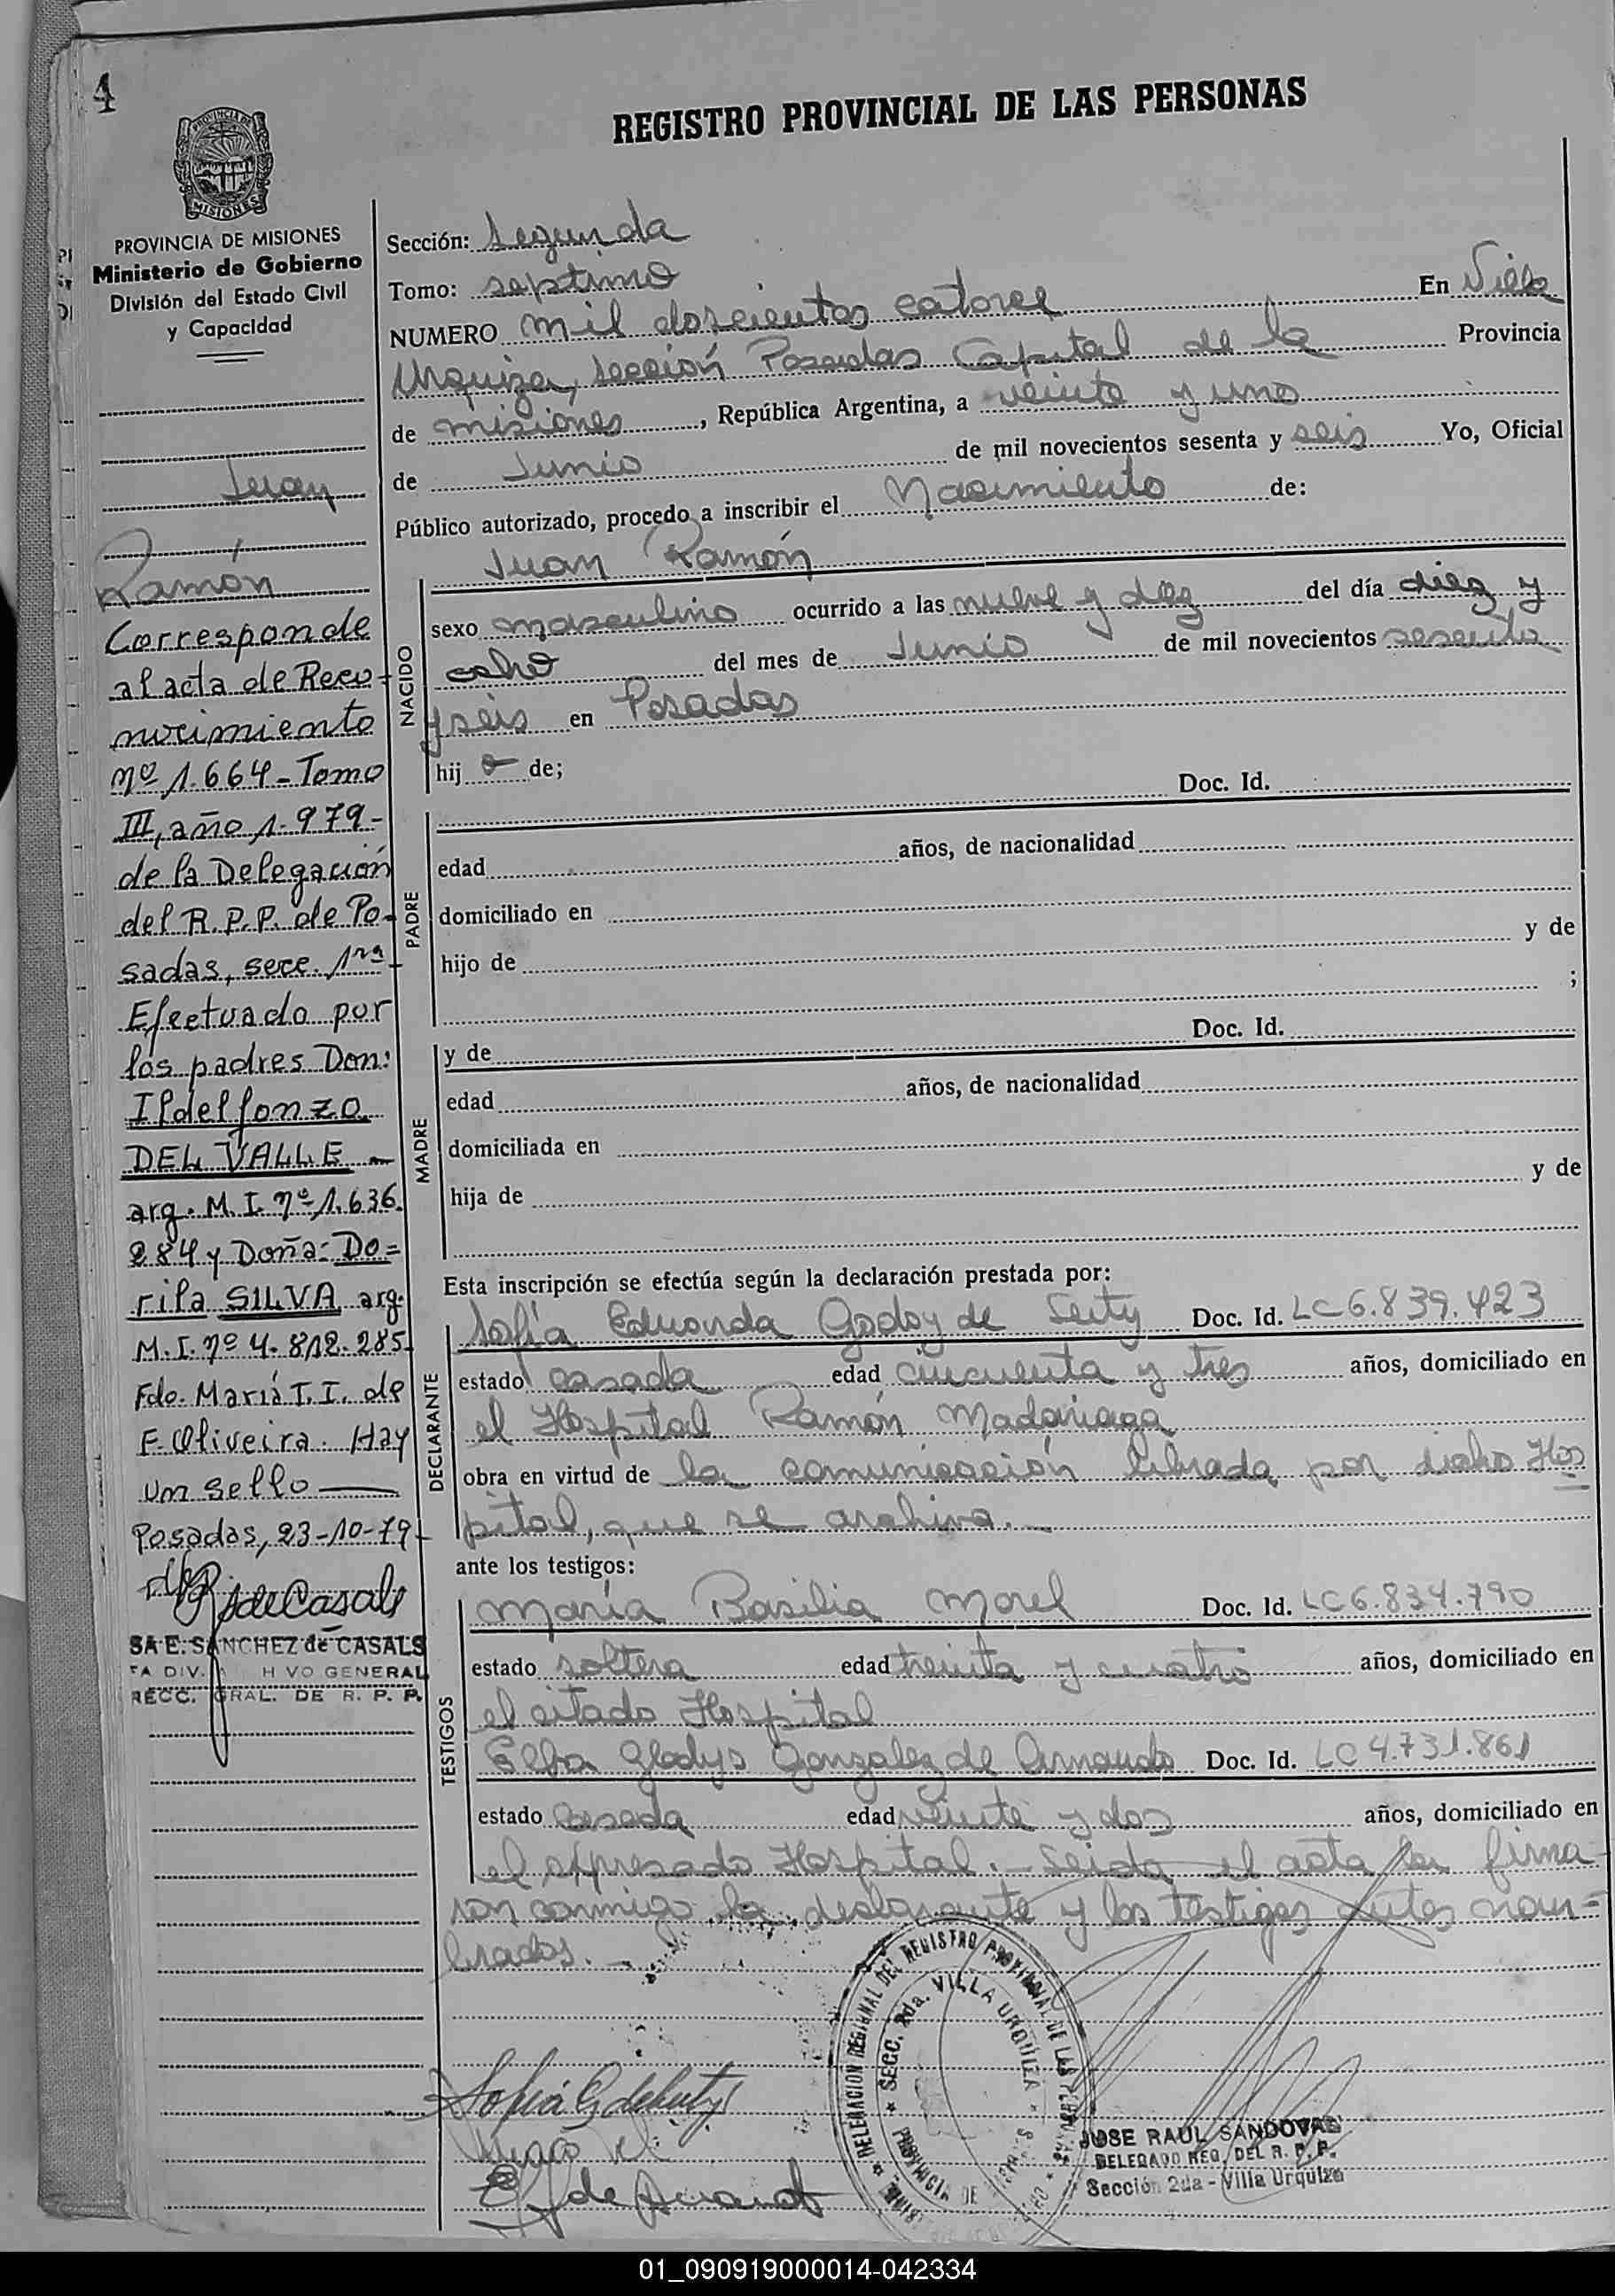 4
REGISTRO PROVINCIAL DE LAS PERSONAS
PROVINCIA DE
MISIONES
PROVINCIA DE MISIONES
Ministerio de Gobierno
División del Estado Civil
y Capacidad
Juan
Ramón
Corresponde
al acta de Reco-
nocimiento
nº 1.664-Tomo
III, año 1.979-
de la Delegación
del R.P.P. de Po-
sadas, secc. 1ra
Efectuado por
los padres Don:
Ildelfonzo
DEL VALLE -
arg. M.I. nº 1.636.
284 y Doña: Do=
rila SILVA arg.
M.I. nº 4.812.285
Fdo. María T. I. de
F. Oliveira. Hay
un sello
Posadas, 23-10-79
SA E. SANCHEZ de CASALS
FA DIV. H VO GENERAL
RECC. GRAL. DE R. P. P.
Sección: Segunda
Tomo: septimo
NUMERO mil doscientos catorce En Villa
Urquiza, sección Posadas Capital de la Provincia
de misiones, República Argentina, a veinte y uno
de Junio de mil novecientos sesenta y seis Yo, Oficial
Público autorizado, procedo a inscribir el Nacimiento de:
NACIDO
Juan Ramón
sexo masculino ocurrido a las nueve y diez del día diez y
ocho del mes de Junio de mil novecientos sesenta
y seis en Posadas
hij o de;
PADRE
Doc. Id.
edad años, de nacionalidad
domiciliado en
hijo de y de
;
MADRE
y de Doc. Id.
edad años, de nacionalidad
domiciliada en
hija de y de
Esta inscripción se efectúa según la declaración prestada por:
DECLARANTE
Sofía Eduarda Godoy de Doc. Id. LC 6.839.423
estado casada edad cincuenta y tres años, domiciliado en
el Hospital Ramón Madariaga
obra en virtud de la comunicación librada por dicho Hos
pital, que se archiva.-
ante los testigos:
TESTIGOS
María Basilia Morel Doc. Id. LC 6.834.790
estado soltera edad treinta y cuatro años, domiciliado en
el citado Hospital
Elba Gladys Gonzalez de Doc. Id. LC 4.731.861
estado Casada edad veinte y dos años, domiciliado en
el expresado Hospital.- Leida el acta la firma
ron conmigo la declarante y los testigos antes nom=
brados.-
DELEGACION REGIONAL DEL REGISTRO PROVINCIAL DE LAS PERSONAS
SECC. 2da. VILLA URQUIZA
PROVINCIA DE
JOSE RAUL SANDOVAL
DELEGADO REG. DEL R. P. P.
Sección 2da - Villa Urquiza
01_090919000014-042334